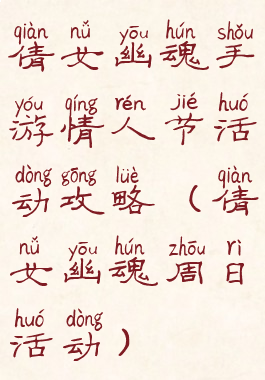 qiàn nǚ yōu hún shǒu
倩女幽魂手
yóu qíng rén jié huó
游情人节活
dòng gōng lüè qiàn
动攻略（倩
nǚ yōu hún zhōu rì
女幽魂周日
huó dòng
活动）